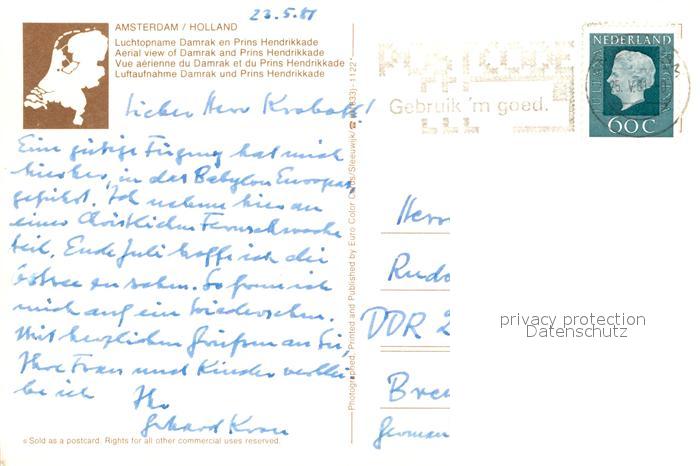 23.5.81
AMSTERDAM / HOLLAND
Luchtopname Damrak en Prins Hendrikkade
Aerial view of Damrak and Prins Hendrikkade
Vue aérienne du Damrak et du Prins Hendrikkade
Luftaufnahme Damrak und Prins Hendrikkade
Lieber Herr
Eine gütige Fügung hat mich
hierher, in das Babylon Europas,
geführt. Ich nehme hier an
einer Christlichen Fernsehwoche
teil. Ende Juli hoffe ich die
Ostsee zu sehen. So freue ich
mich auf ein Wiedersehen.
Mit herzlichen Grüßen an Sie,
Ihre Frau und Kinder verblei
be ich Ihr
© Sold as a postcard. Rights for all other commercial uses reserved.
Photographed, Printed and Published by Euro Color Cards/Sleeuwijk/
POSTCODE
Gebruik 'm goed.
NEDERLAND
60 C
Herr
Rudo
DDR 2
Bre
German
privacy protection
Datenschutz